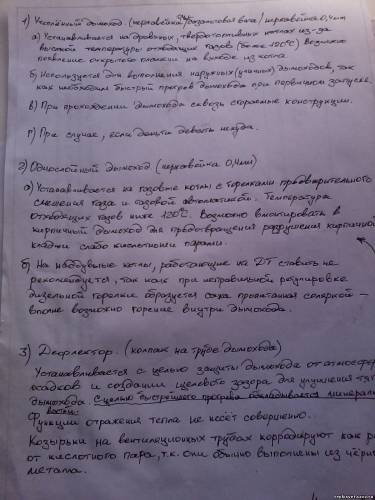 1) Утеплённый дымоход (нержавейка/базальтовая вата/нержавейка 0,4мм
а) Устанавливается на дровяных, твердотопливных котлах из-за
высокой температуры отходящих газов (более 120°С) Возможно
появление открытого пламени на выходе из котла.
б) Используется для выполнения наружных (уличных) дымоходов, так
как необходим быстрый прогрев дымохода при первичном запуске.
в) При прохождении дымохода сквозь сгораемые конструкции.
г) При случае, если деньги девать некуда.
2) Однослойный дымоход (нержавейка 0,4мм)
а) Устанавливается на газовые котлы с горелками предварительного
смешения газа и газовой автоматикой. Температура
отходящих газов ниже 120°С. Возможно вмонтировать в
кирпичный дымоход для предотвращения разрушения кирпичной
кладки слабо кислотными парами.
б) На наддувные котлы, работающие на ДТ ставить не
рекомендуется, так как при неправильной регулировке
дизельной горелки образуется сажа пропитанная соляркой –
вполне возможно горение внутри дымохода.
3) Дефлектор. (колпак на трубе дымохода)
Устанавливается с целью защиты дымохода от атмосфер
осадков и создании щелевого зазора для улучшения тяг
дымохода. С целью быстрейшего прогрева обкладывается минерал
ватой.
Функции отражения тепла не несёт совершенно.
Козырьки на вентиляционных трубах корродируют как ра
от кислотного пара, т.к. они обычно выполнены из чёрн
металла.